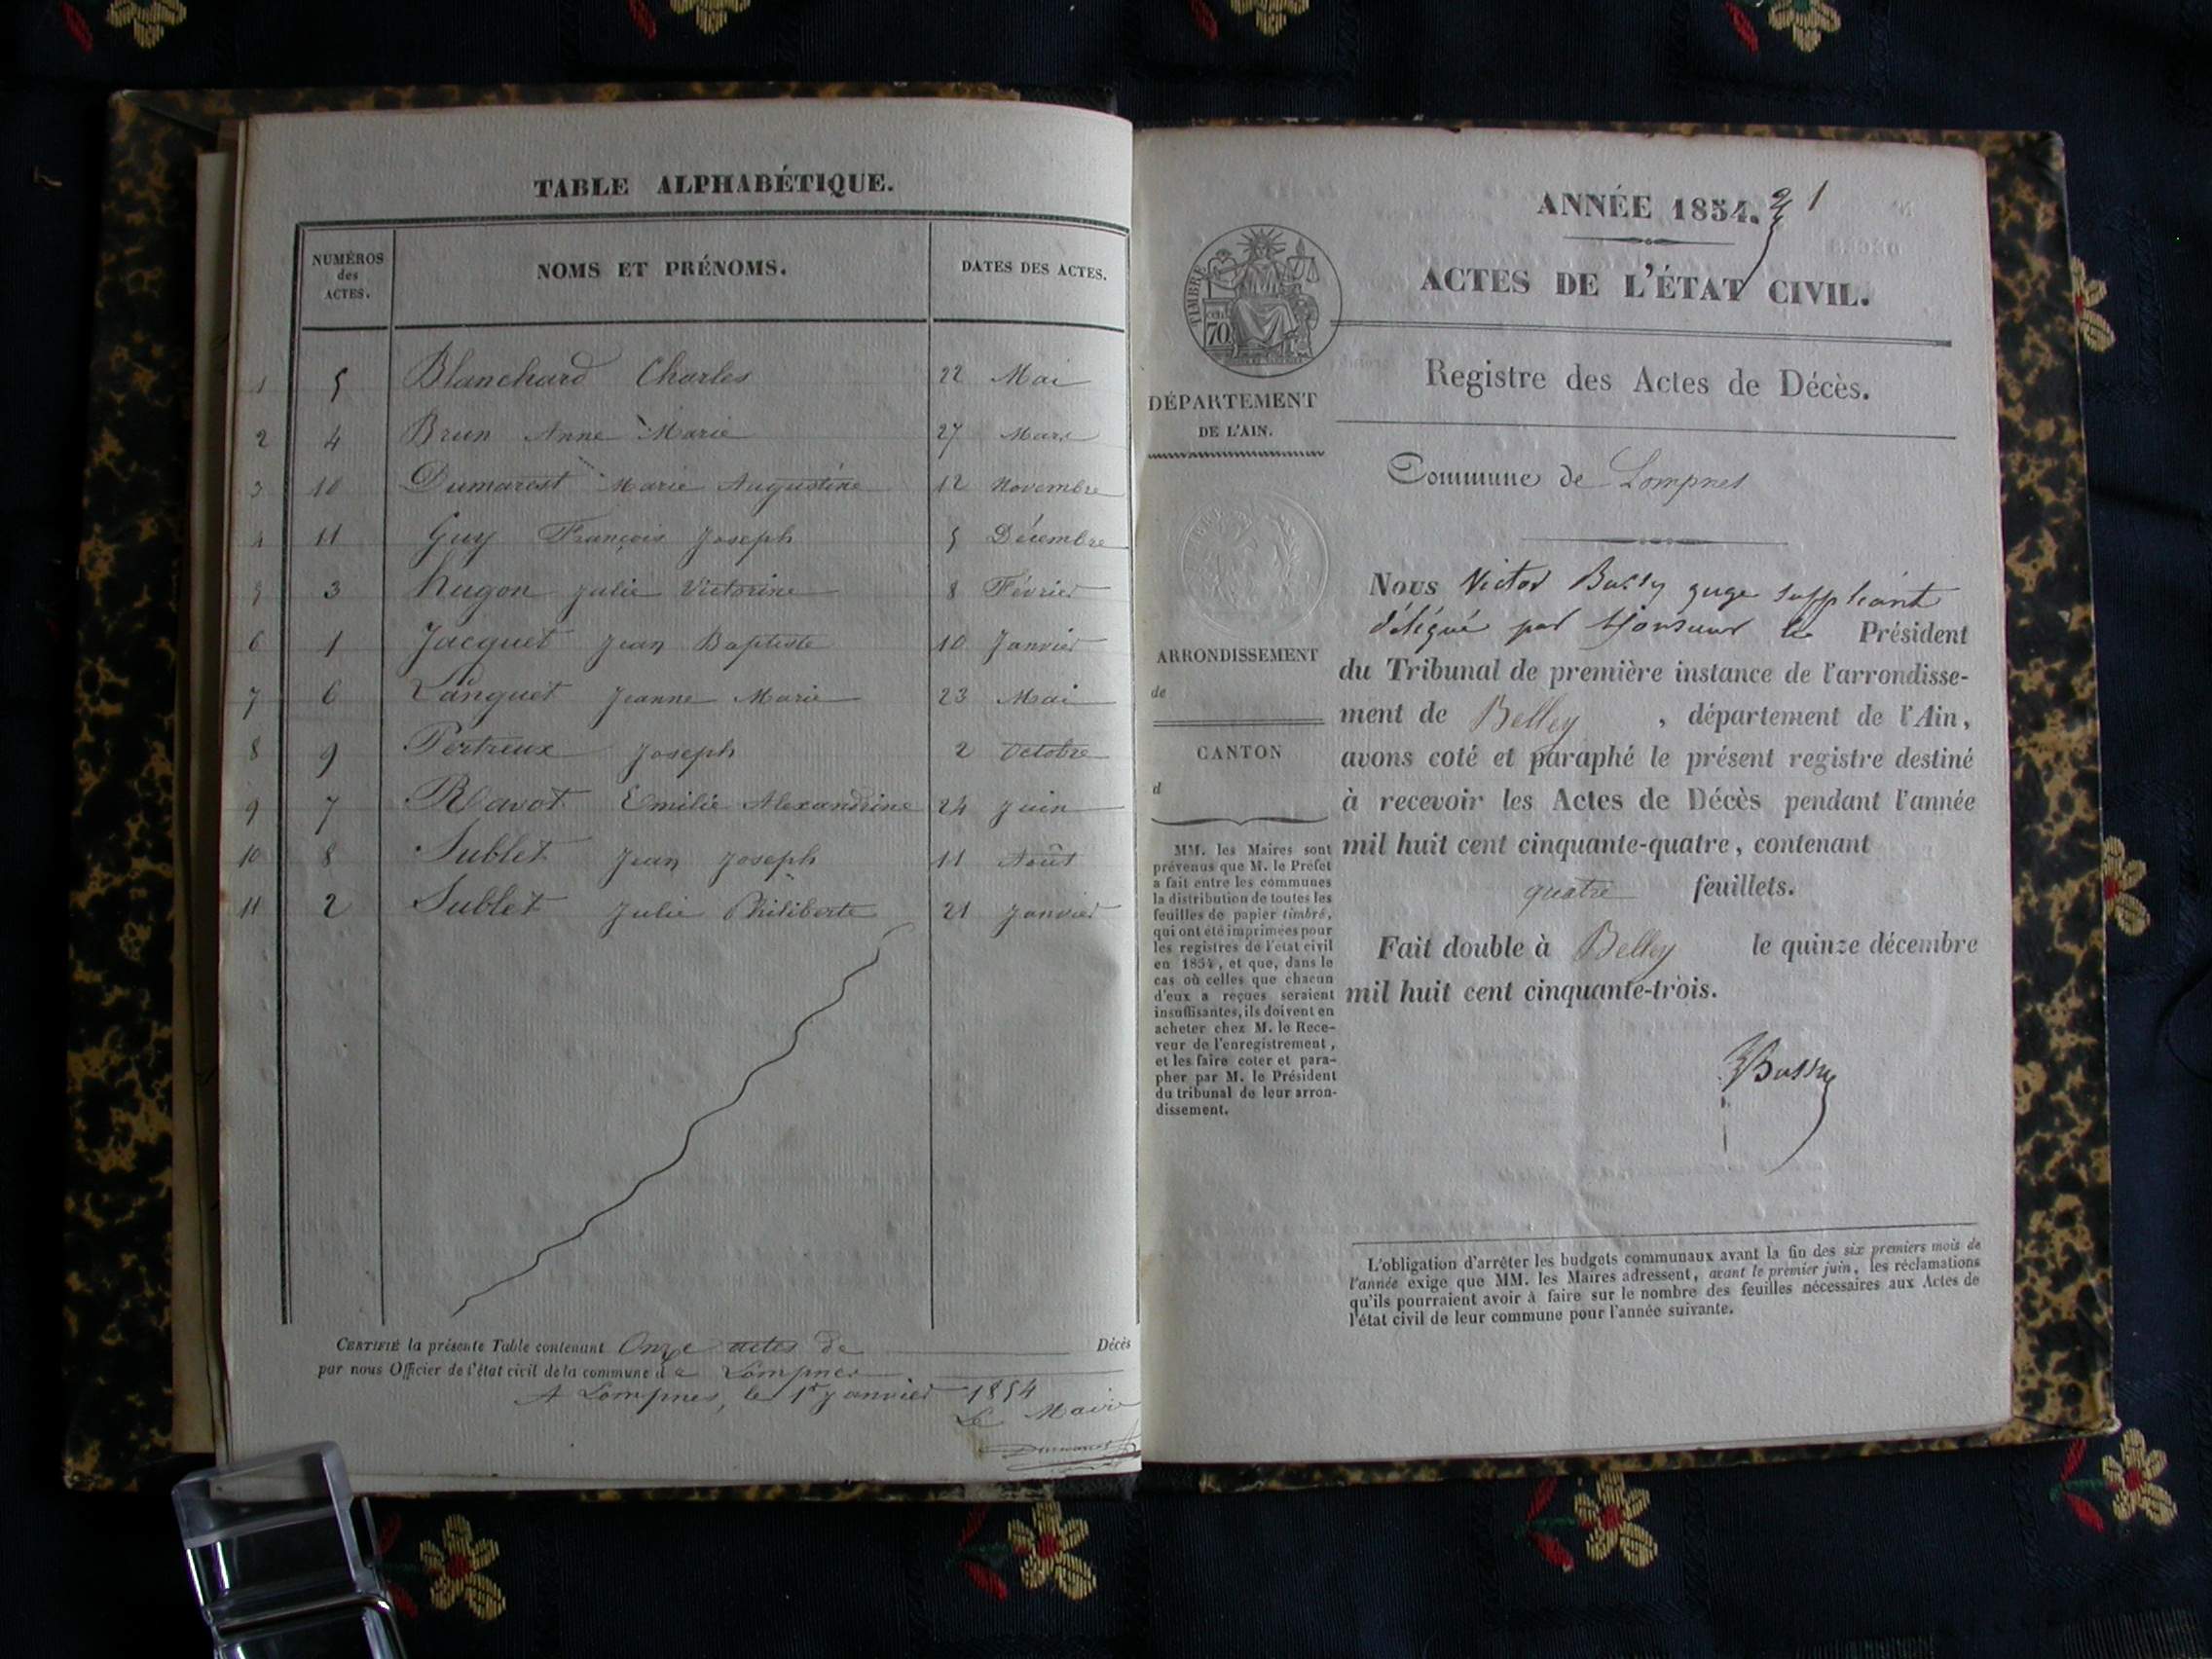 TABLE ALPHABÉTIQUE.
NUMÉROS des ACTES. NOMS ET PRÉNOMS. DATES DES ACTES.
1 5 Blanchard Charles 22 Mai
2 4 Brun Anne Marie 27 Mars
3 10 Dumarest Marie Augustine 12 Novembre
4 11 Guy François Joseph 5 Décembre
5 3 hugon Julie Victorine 8 Février
6 1 Jacquet Jean Baptiste 10 Janvier
7 6 Languet Jeanne Marie 23 Mai
8 9 Pertreux Joseph 2 Octobre
9 7 Ravot Emilie Alexandrine 24 Juin
10 8 Sublet Jean Joseph 11 Août
11 2 Sublet Julie Philiberte 21 Janvier
CERTIFIÉ la présente Table contenant Onze actes de Décès
par nous Officier de l'état civil de la commune de Lompnes
A Lompnes, le 1er Janvier 1854
Le Maire
Dumarest
ANNÉE 1854. 1
ACTES DE L'ÉTAT CIVIL.
Registre des Actes de Décès.
TIMBRE
cen. 70
DÉPARTEMENT
DE L'AIN.
ARRONDISSEMENT
de
CANTON
d
MM. les Maires sont
prévenus que M. le Préfet
a fait entre les communes
la distribution de toutes les
feuilles de papier timbré,
qui ont été imprimées pour
les registres de l'état civil
en 1854, et que, dans le
cas où celles que chacun
d'eux a reçues seraient
insuffisantes, ils doivent en
acheter chez M. le Rece-
veur de l'enregistrement,
et les faire coter et para-
pher par M. le Président
du tribunal de leur arron-
dissement.
Commune de Lompnes
Nous Victor Bussy juge suppléant
délégué par Monsieur le Président
du Tribunal de première instance de l'arrondisse-
ment de Belley , département de l'Ain,
avons coté et paraphé le présent registre destiné
à recevoir les Actes de Décès pendant l'année
mil huit cent cinquante-quatre, contenant
quatre feuillets.
Fait double à Belley le quinze décembre
mil huit cent cinquante-trois.
VBussy
L'obligation d'arrêter les budgets communaux avant la fin des six premiers mois de
l'année exige que MM. les Maires adressent, avant le premier juin, les réclamations
qu'ils pourraient avoir à faire sur le nombre des feuilles nécessaires aux Actes de
l'état civil de leur commune pour l'année suivante.